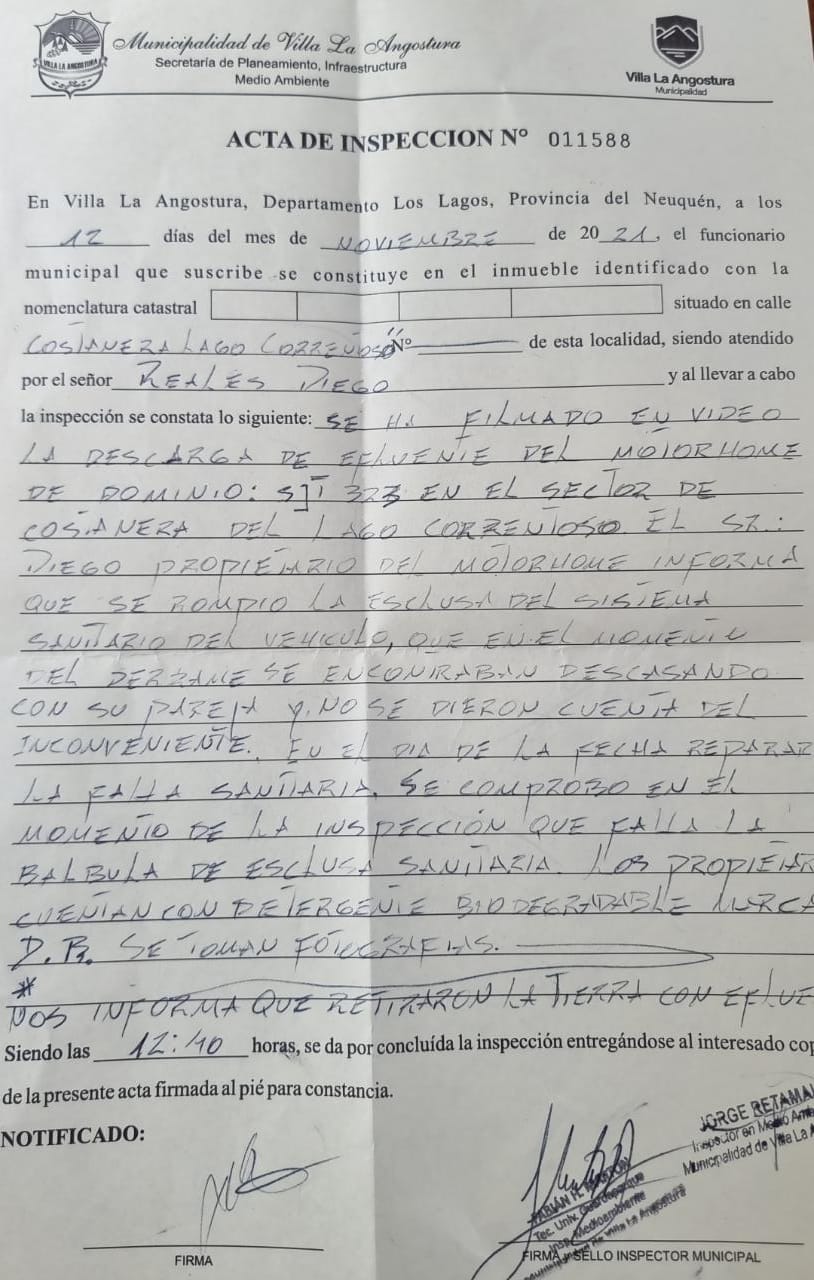 VILLA LA ANGOSTURA
Municipalidad de Villa La Angostura
Secretaría de Planeamiento, Infraestructura
Medio Ambiente
Villa La Angostura
Municipalidad
ACTA DE INSPECCION Nº 011588
En Villa La Angostura, Departamento Los Lagos, Provincia del Neuquén, a los
12 días del mes de NOVIEMBRE de 2021, el funcionario
municipal que suscribe se constituye en el inmueble identificado con la
nomenclatura catastral situado en calle
COSTANERA LAGO CORRENTOSO Nº de esta localidad, siendo atendido
por el señor REALES DIEGO y al llevar a cabo
la inspección se constata lo siguiente: SE HA FILMADO EN VIDEO
LA DESCARGA DE EFLUENTE DEL MOTORHOME
DE DOMINIO: SJT 323 EN EL SECTOR DE
COSTANERA DEL LAGO CORRENTOSO. EL SR.:
DIEGO PROPIETARIO DEL MOTORHOME INFORMA
QUE SE ROMPIO LA ESCLUSA DEL SISTEMA
SANITARIO DEL VEHICULO, QUE EN EL MOMENTO
DEL DERRAME SE ENCONTRABAN DESCASANDO
CON SU PAREJA Y NO SE DIERON CUENTA DEL
INCONVENIENTE. EN EL DIA DE LA FECHA REPARAR
LA FALLA SANITARIA. SE COMPROBO EN EL
MOMENTO DE LA INSPECCIÓN QUE FALLA LA
BALBULA DE ESCLUSA SANITARIA. LOS PROPIETAR
CUENTAN CON DETERGENTE BIODEGRADABLE MARCA
D.R. SE TOMAN FOTOGRAFIAS.
*
NOS INFORMA QUE RETIRARON LA TIERRA CON EFLUE
Siendo las 12:40 horas, se da por concluída la inspección entregándose al interesado cop
de la presente acta firmada al pié para constancia.
NOTIFICADO:
JORGE RETAMA
Inspector en Medio Am
Municipalidad de Villa La A
FABIÁN H.
Tec. Univ. Guardaparque
Insp. Medioambiente
Municipalidad de Villa La Angostura
FIRMA
FIRMA y SELLO INSPECTOR MUNICIPAL